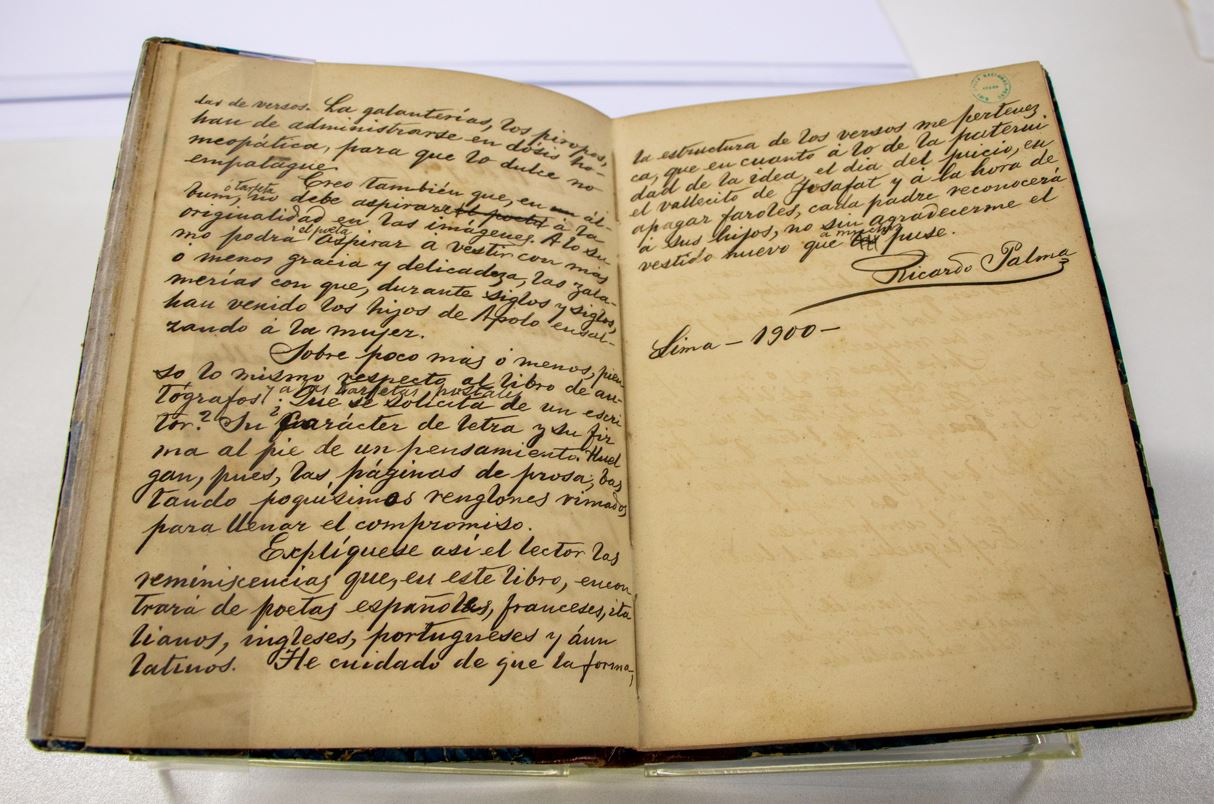 das de versos. La galanterías, los piropos,
han de administrarse en dósis ho-
meopática, para que lo dulce no
empalague.
Creo también que, en ál-
bum, ó tarjeta no debe aspirarse á la
originalidad en las imágenes. A lo su
mo podrá el poeta aspirar á vestir con más
ó menos gracia y delicadeza, las zala-
merías con que, durante siglos y siglos,
han venido los hijos de Apolo ensal-
zando á la mujer.
Sobre poco más ó menos, pien
so lo mismo respecto al libro de au-
tógrafos y a las tarjetas postales. ¿Qué se solicita de un escri
tor? Su carácter de letra y su fir
ma al pie de un pensamiento. Huel
gan, pues, las páginas de prosa, bas
tando poquísimos renglones rimados
para llenar el compromiso.
Explíquese así el lector las
reminiscencias que, en este libro, encon
trará de poetas españoles, franceses, ita
lianos, ingleses, portugueses y áun
latinos. He cuidado de que la forma,
la estructura de los versos me pertenez
ca, que en cuanto á lo de la paterni-
dad de la idea, el dia del juicio, en
el vallecito de Josafat y á la hora de
apagar faroles, cada padre reconocerá
a sus hijos, no sin agradecerme el
vestido nuevo que á muchos puse.
Ricardo Palma
Lima - 1900 -